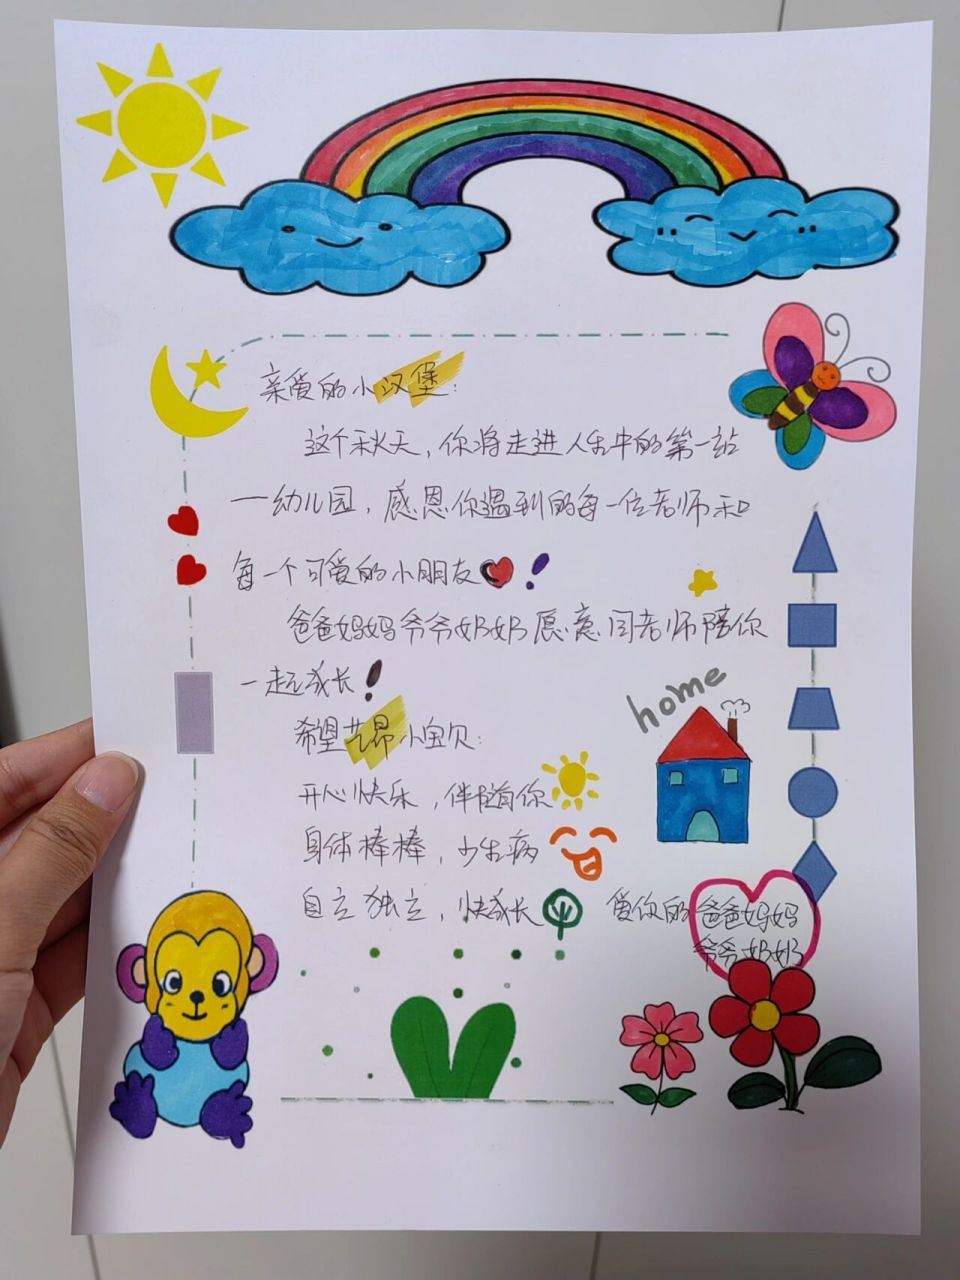 亲爱的小汉堡：
这个秋天，你将走进人生中的第一站
—幼儿园，感恩你遇到的每一位老师和
每一个可爱的小朋友！
爸爸妈妈爷爷奶奶愿意同老师陪你
一起成长！
home
希望艺昂小宝贝：
开心快乐，伴随你
身体棒棒，少生病
自立独立，快成长
爱你的爸爸妈妈
爷爷奶奶